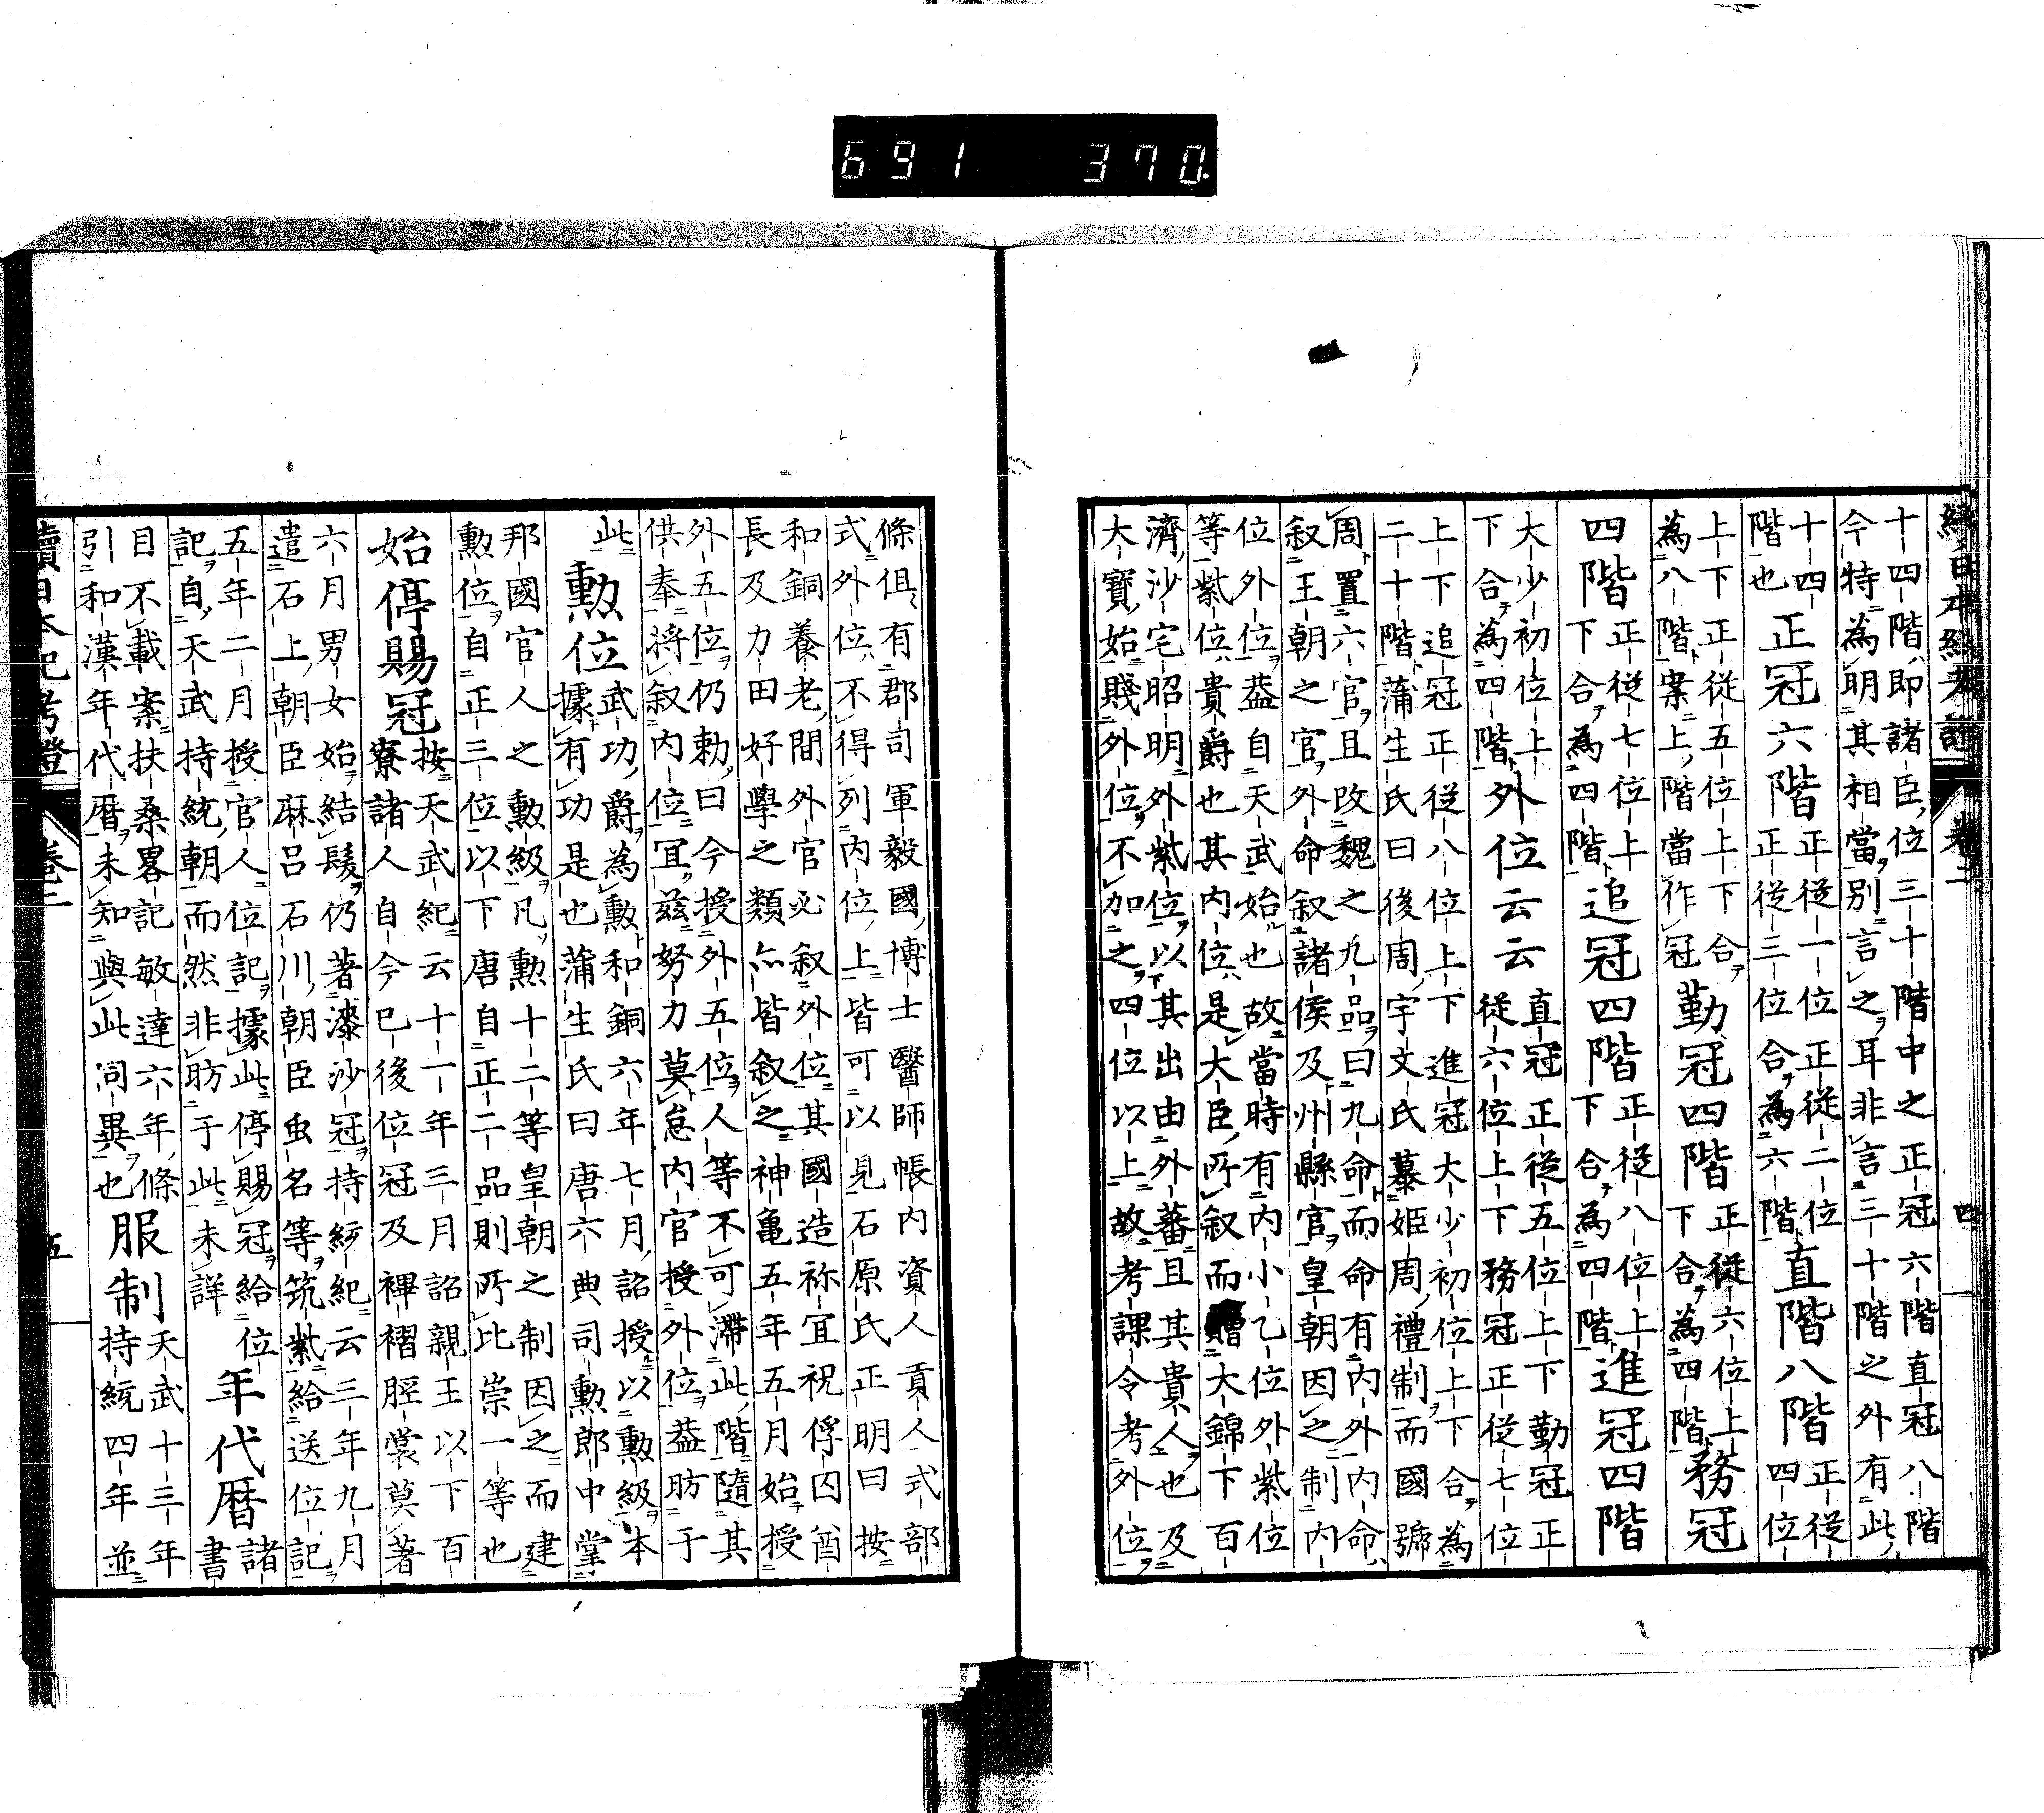 續日本紀考證 卷二 四
十四階即諸臣位三十階中之正冠六階直冠八階
今特為明其相當別言之耳非言三十階之外有此
十四
階也
正冠六階
正從一位正從二位
正從三位合為六階
直階八階
正從
四位
上下正從五位上下合
為八階案上階當作冠
勤冠四階
正從六位上
下合為四階
務冠
四階
正從七位上
下合為四階
追冠四階
正從八位上
下合為四階
進冠四階
大少初位上
下合為四階
外位云云
直冠正從五位上下勤冠正
從六位上下務冠正從七位
上下追冠正從八位上下進冠大少初位上下合為
二十階蒲生氏曰後周宇文氏慕姬周禮制而國號
周置六官且改魏之九品曰九命而命有内外内命
叙王朝之官外命叙諸侯及州縣官皇朝因之制内
位外位葢自天武始也故當時有内小乙位外紫位
等紫位貴爵也其内位是大臣所叙而贈大錦下百
濟沙宅昭明外紫位以其出由外蕃且其貴人也及
大寶始賤外位不加之四位以上故考課令考外位
條俱有郡司軍毅國博士醫師帳内資人貢人式部
式外位不得列内位上皆可以見石原氏正明曰按
和銅養老間外官必叙外位其國造祢宜祝俘囚酋
長及力田好學之類亦皆叙之神亀五年五月始授
外五位仍勅曰今授外五位人等不可滯此階隨其
供奉將叙内位宜茲努力莫怠内官授外位葢昉于
此
勲位
武功爵為勲和銅六年七月詔授以勲級本
據有功是也蒲生氏曰唐六典司勲郎中掌
邦國官人之勲級凡勲十二等皇朝之制因之而建
勲位自正三位以下唐自正二品則所比崇一等也
始停賜冠
按天武紀云十一年三月詔親王以下百
寮諸人自今已後位冠及襅褶脛裳莫著
六月男女始結髮仍著漆沙冠持統紀云三年九月
遣石上朝臣麻呂石川朝臣虫名等筑紫給送位記
五年二月授官人位記據此停賜冠給位
記自天武持統朝而然非昉于此未詳
年代暦
諸
書
目不載案扶桑畧記敏達六年條
引和漢年代暦未知與此同異也
服制
天武十三年
持統四年並
續日本紀考證 卷二 五
691 370.